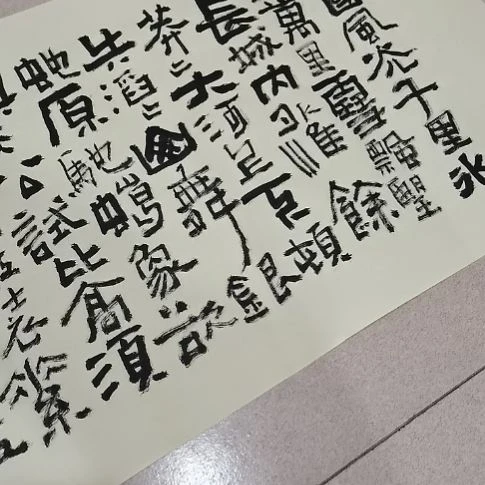 國風光千里冰
萬里雪飄望
長城內外惟餘
莽〻大河上下頓
失滔〻山舞銀
虵原馳蠟象欲
天公試比高須
素